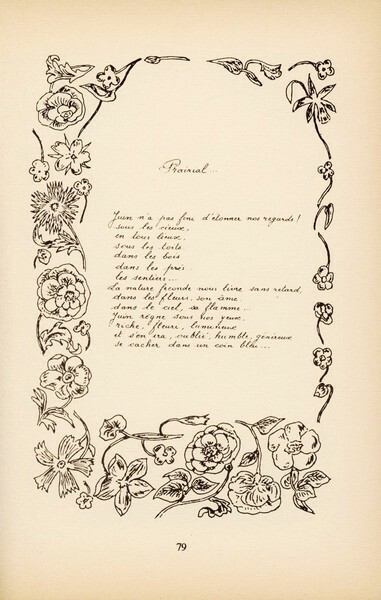 Prairial...
Juin n'a pas fini d'étonner nos regards !
sous les cieux,
en tous lieux,
sous les toits
dans les bois
dans les prés
les sentiers...
La nature féconde nous livre sans retard,
dans les fleurs, son âme,
dans le ciel, sa flamme...
Juin règne sous nos yeux,
riche, fleuri, lumineux
et s'en ira, oublié, humble, généreux
se cacher dans un coin bleu...
79